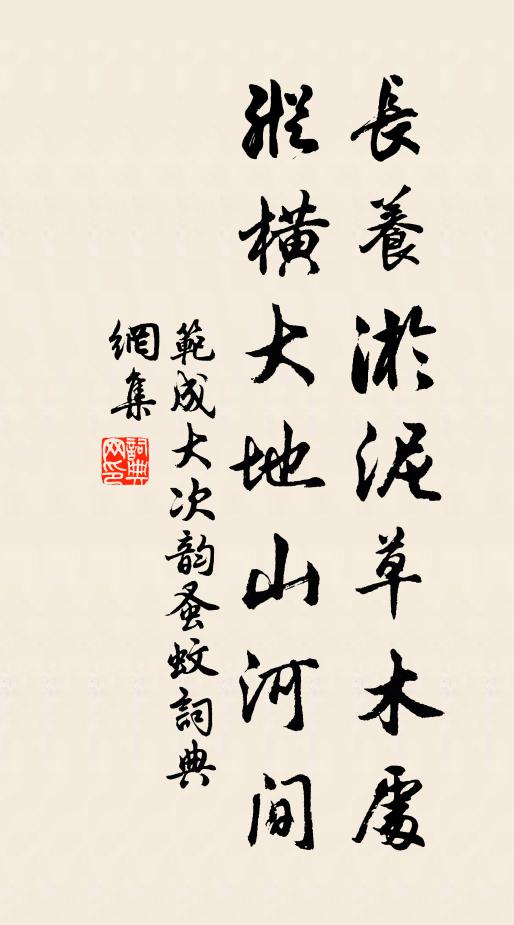 長養淤泥草木處
縱橫大地山河間
範成大次韵蚤蚊詞典
網集
詞典
网印